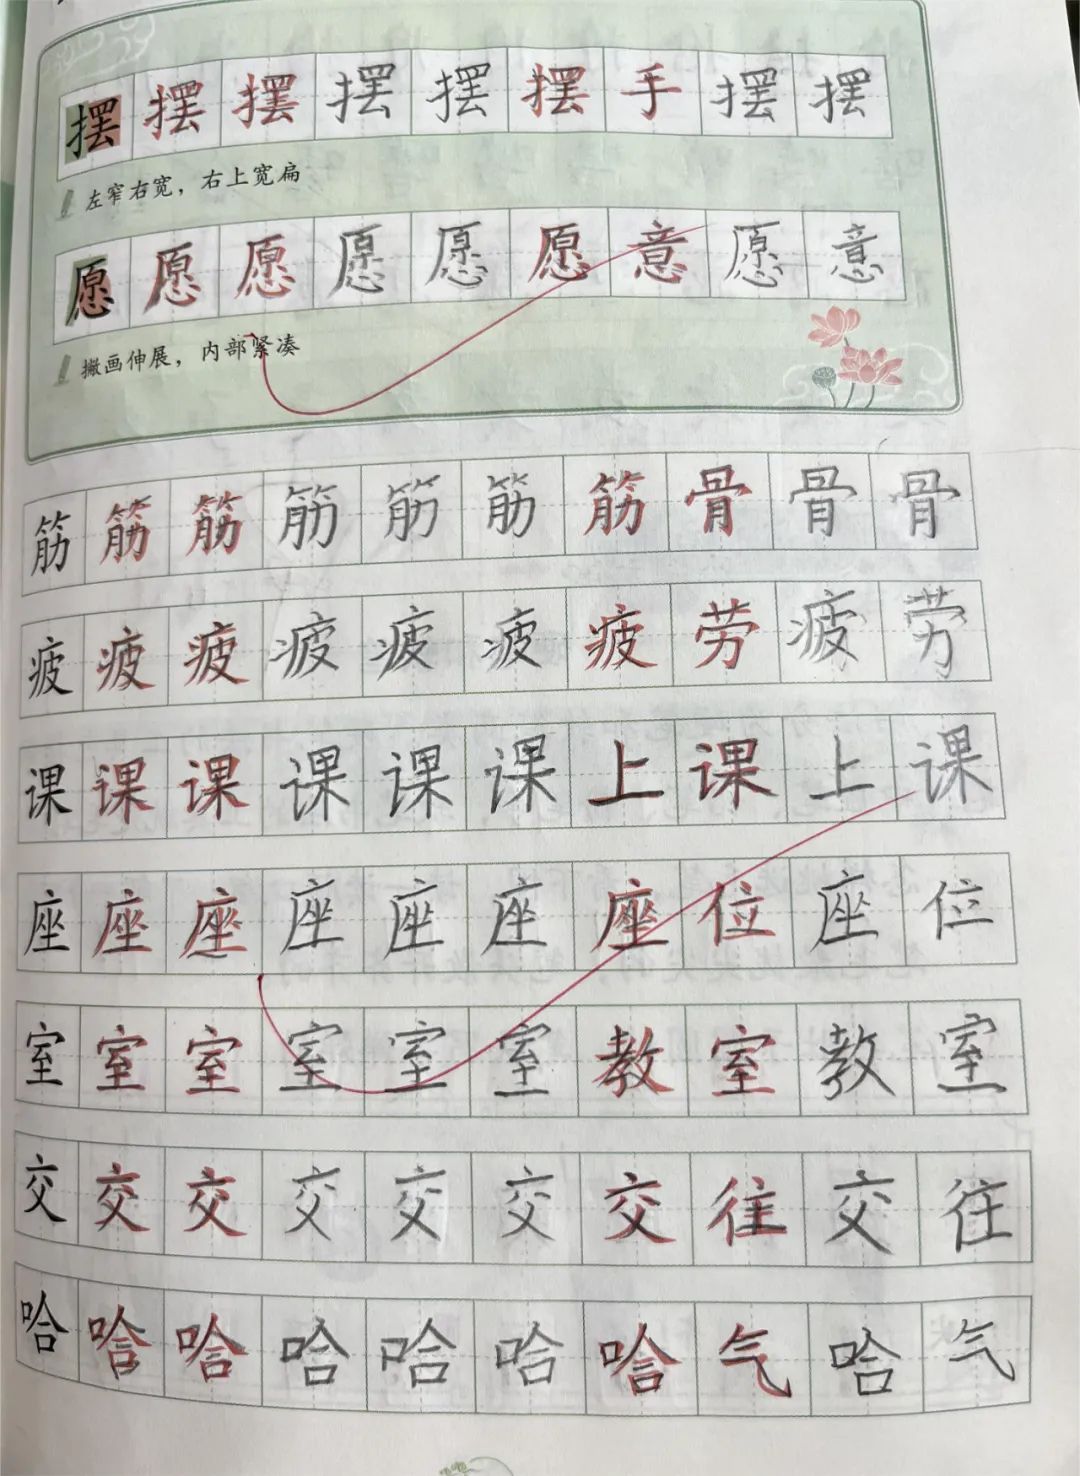 摆摆摆摆摆摆手摆摆
左窄右宽，右上宽扁
愿愿愿愿愿愿意愿意
撇画伸展，内部紧凑
筋筋筋筋筋筋筋骨骨骨
疲疲疲疲疲疲疲劳疲劳
课课课课课课上课上课
座座座座座座座位座位
室室室室室室教室教室
交交交交交交交往交往
哈哈哈哈哈哈哈气哈气